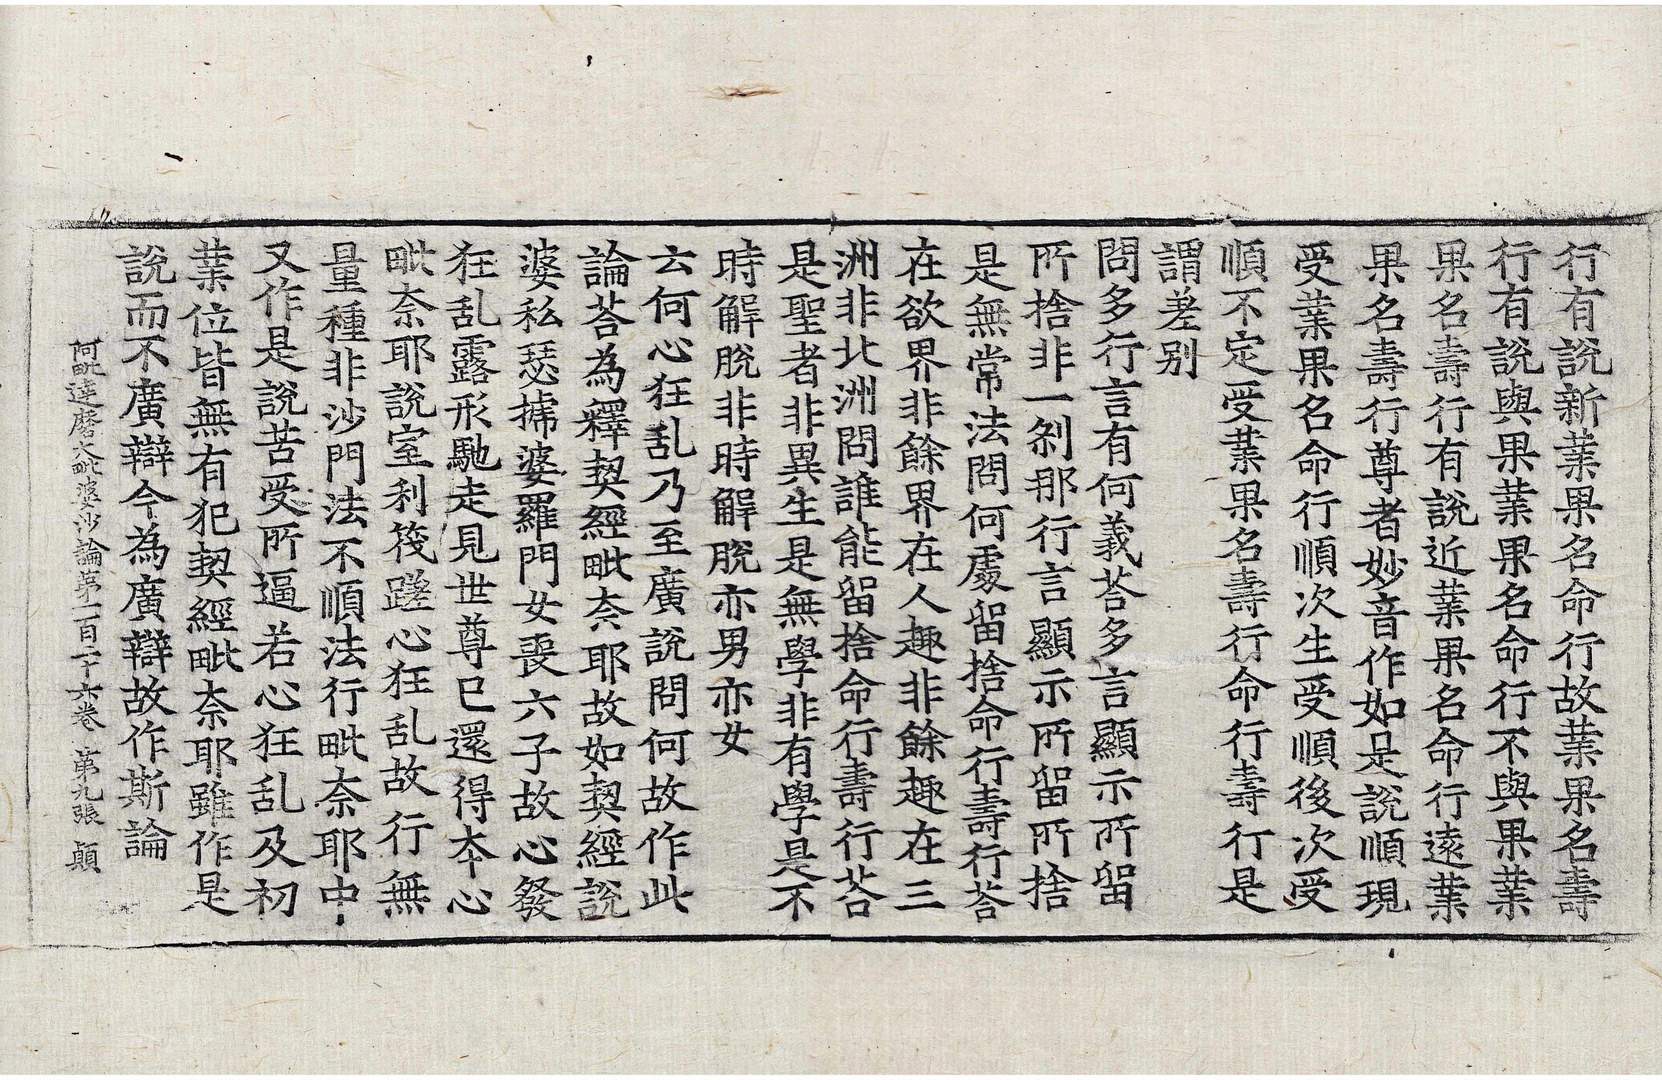 行有說新業果名命行故業果名壽
行有說與果業果名命行不與果業
果名壽行有說近業果名命行遠業
果名壽行尊者妙音作如是說順現
受業果名命行順次生受順後次受
順不定受業果名壽行命行壽行是
謂差别
問多行言有何義荅多言顯示所留
所捨非一刹那行言顯示所留所捨
是無常法問何處留捨命行壽行荅
在欲界非餘界在人趣非餘趣在三
洲非北洲問誰能留捨命行壽行荅
是聖者非異生是無學非有學是不
時解脫非時解脫亦男亦女
云何心狂乱乃至廣說問何故作此
論荅為釋契經毗奈耶故如契經說
婆私瑟搋婆羅門女喪六子故心發
狂乱露形馳走見世尊已還得夲心
毗奈耶說室利筏蹉心狂乱故行無
量種非沙門法不順法行毗奈耶中
又作是說苦受所逼若心狂乱及初
業位皆無有犯契經毗奈耶雖作是
說而不廣辯今為廣辯故作斯論
阿毗達磨大毗婆沙論第一百二十六卷 第九張 顛